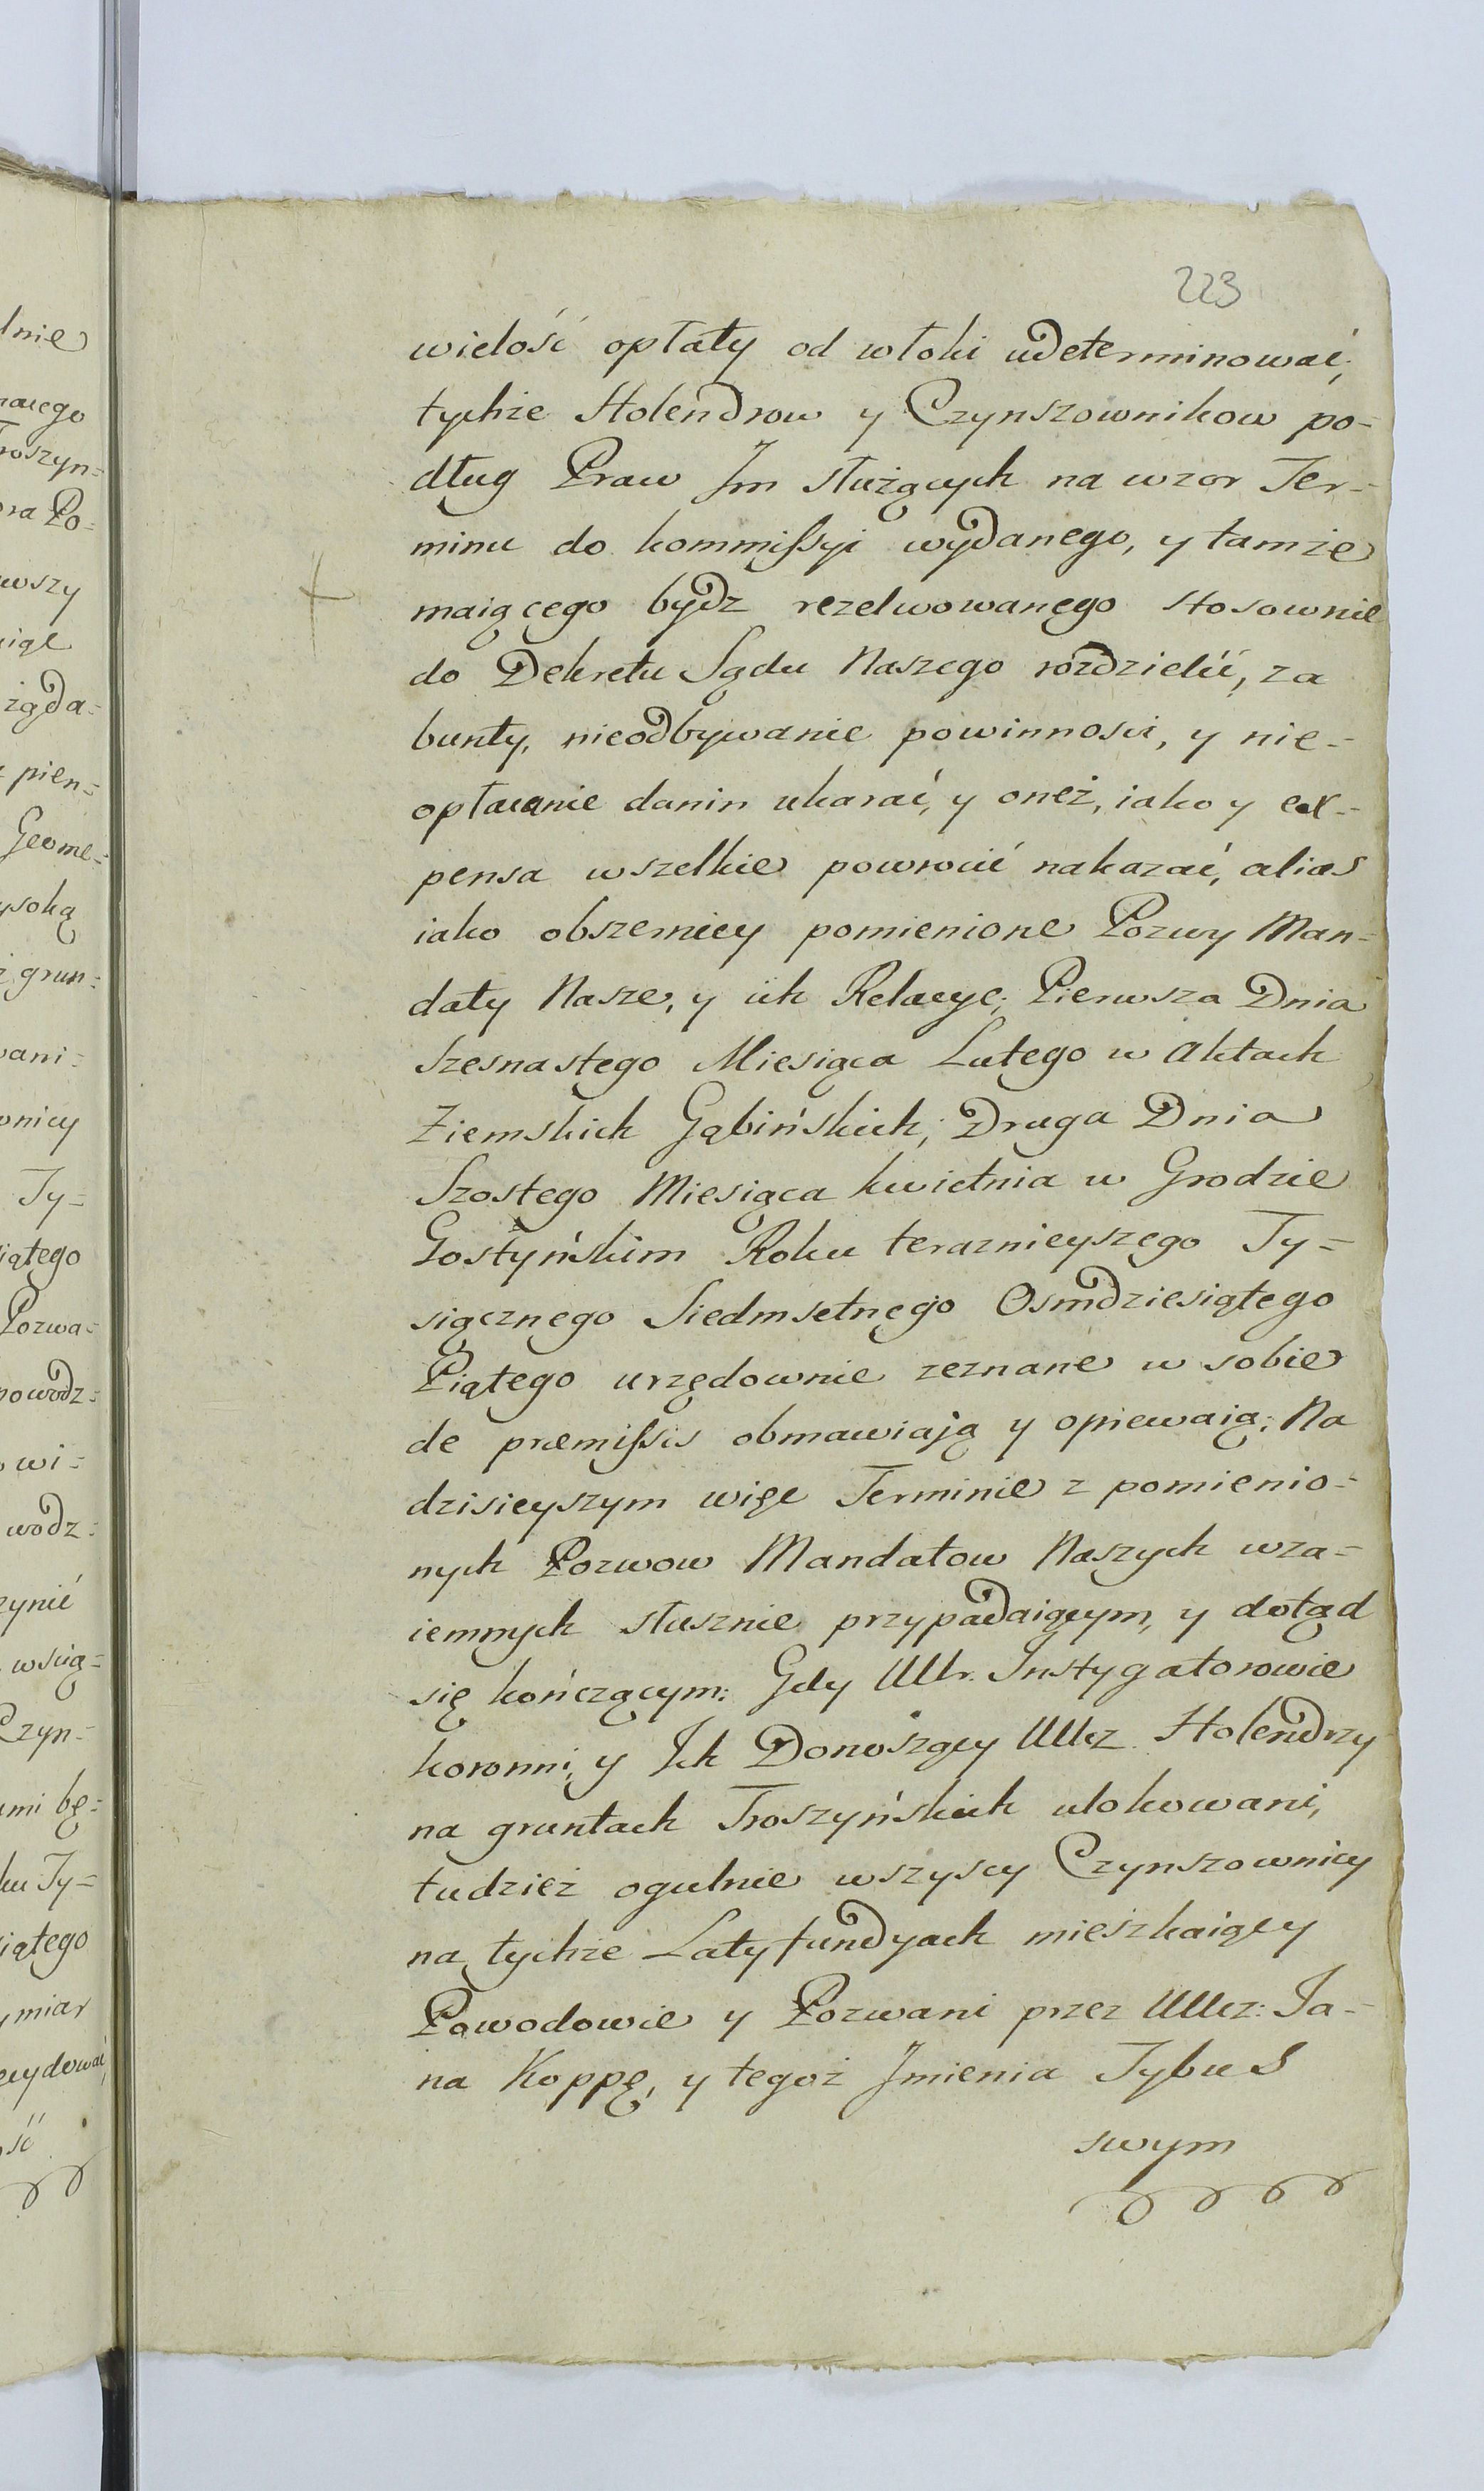 223
wielość opłaty od włoki udeterminować,
tychże Holendrow y Czynszownikow po=
dług Praw Jm służących na wzor Ter=
minu do kommissyi wydanego, y tamże
maiącego bydz rezelwowanego stosownie
do Dekretu Sądu Naszego rozdzielić, za
bunty, nieodbywanie powinności, y nie=
opłacanie danin ukarać, y oneż, iako y ex=
pensa wszelkie powrócić nakazać, alias
iako obszerniey pomienione Pozwy Man=
daty Nasze, y ich Relacye; Pierwsza Dnia
Szesnastego Miesiąca Lutego w Aktach
Ziemskich Gąbińskich; Druga Dnia
Szostego Miesiąca kwietnia w Grodzie
Gostyńskim Roku terazniejszego Ty=
siącznego Siedmsetnego Osmdziesiątego
Piątego urzędownie zeznane w sobie
de præmissis obmawiają y opiewaią; Na
dzisieyszym więc Terminie z pomienio=
nych Pozwow Mandatow Naszych wza=
iemnych słusznie przypadaiącym, y dotąd
się kończącym: Gdy UUr. Instygatorowie
koronni, y Ich Donoszący UUcz. Holendrzy
na gruntach Troszyńskich ulokowani,
tudzież ogulnie wszyscy Czynszownicy
na tychże Latyfundyach mieszkaiący
Powodowie y Pozwani przez UUcz: Ja=
na Koppę, y tegoż Jmienia Tybus
swym
lnie
Troszyn=
ra Po=
wszy
żąda=
pien=
Geome=
ysoką
grun=
wani=
wnicy
Ty=
iątego
Pozwa=
powodz=
wi=
wodz=
zynić
wsią=
Czyn=
ami bę=
ku Ty=
iątego
ymiar
ecydować
ść